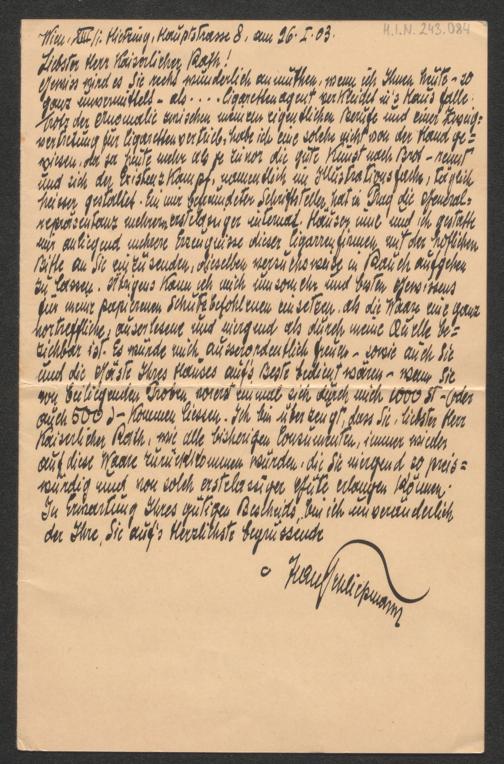 H.I.N. 243.084
Wien XIII/1. Hietzing, Hauptstrasse 8, am 26.I.03.
Liebster Herr Kaiserlicher Rath!
Gewiss wird es Sie recht wunderlich anmuthen, wenn ich Ihnen heute - so
ganz unvermittelt - als .... Cigarettenagent verkleidet in's Haus falle.
Trotz der Anomalie zwischen meinem eigentlichen Berufe und einer
vertretung für Cigarettenvertrieb, habe ich eine solche nicht von der Hand ge=
wiesen, da ja heute mehr als je zuvor die gute Kunst nach Brot - rennt
und sich der Existenzkampf, namentlich im Illustrationsfache, täglich
heisser gestaltet. Ein mir befreundeter Schriftsteller hat in Prag die General=
repräsentanz mehrerer erstclassiger internat. Häuser inne und ich gestatte
mir anliegend mehrere Erzeugnisse dieser Cigarrenfirmen mit der höflichen
Bitte an Sie einzusenden, dieselben versuchsweise in Rauch aufgehen
zu lassen. Übrigens kann ich mich umsomehr und besten Gewissens
für meine papierenen Schutzbefohlenen einsetzen, als die Waare eine ganz
vortreffliche, auserlesene und nirgend als durch meine Quelle be=
ziehbar ist. Es würde mich ausserordentlich freuen - sowie auch Sie
und die Gäste Ihres Hauses auf's Beste bedient wären - wenn Sie
von beiliegenden Proben vorerst einmal sich durch mich 1000 St - (oder
auch 500) - kommen liessen. Ich bin überzeugt dass Sie, liebster Herr
Kaiserlicher Rath, wie alle bisherigen Consumenten, immer wieder
auf diese Waare zurückkommen würden, die Sie nirgend so preis=
würdig und von solch erstclassiger Güte erlangen können.
In Erwartung Ihres gütigen Bescheids, bin ich unveränderlich
der Ihre, Sie auf's Herzlichste begrüssende
Hans Schliepmann